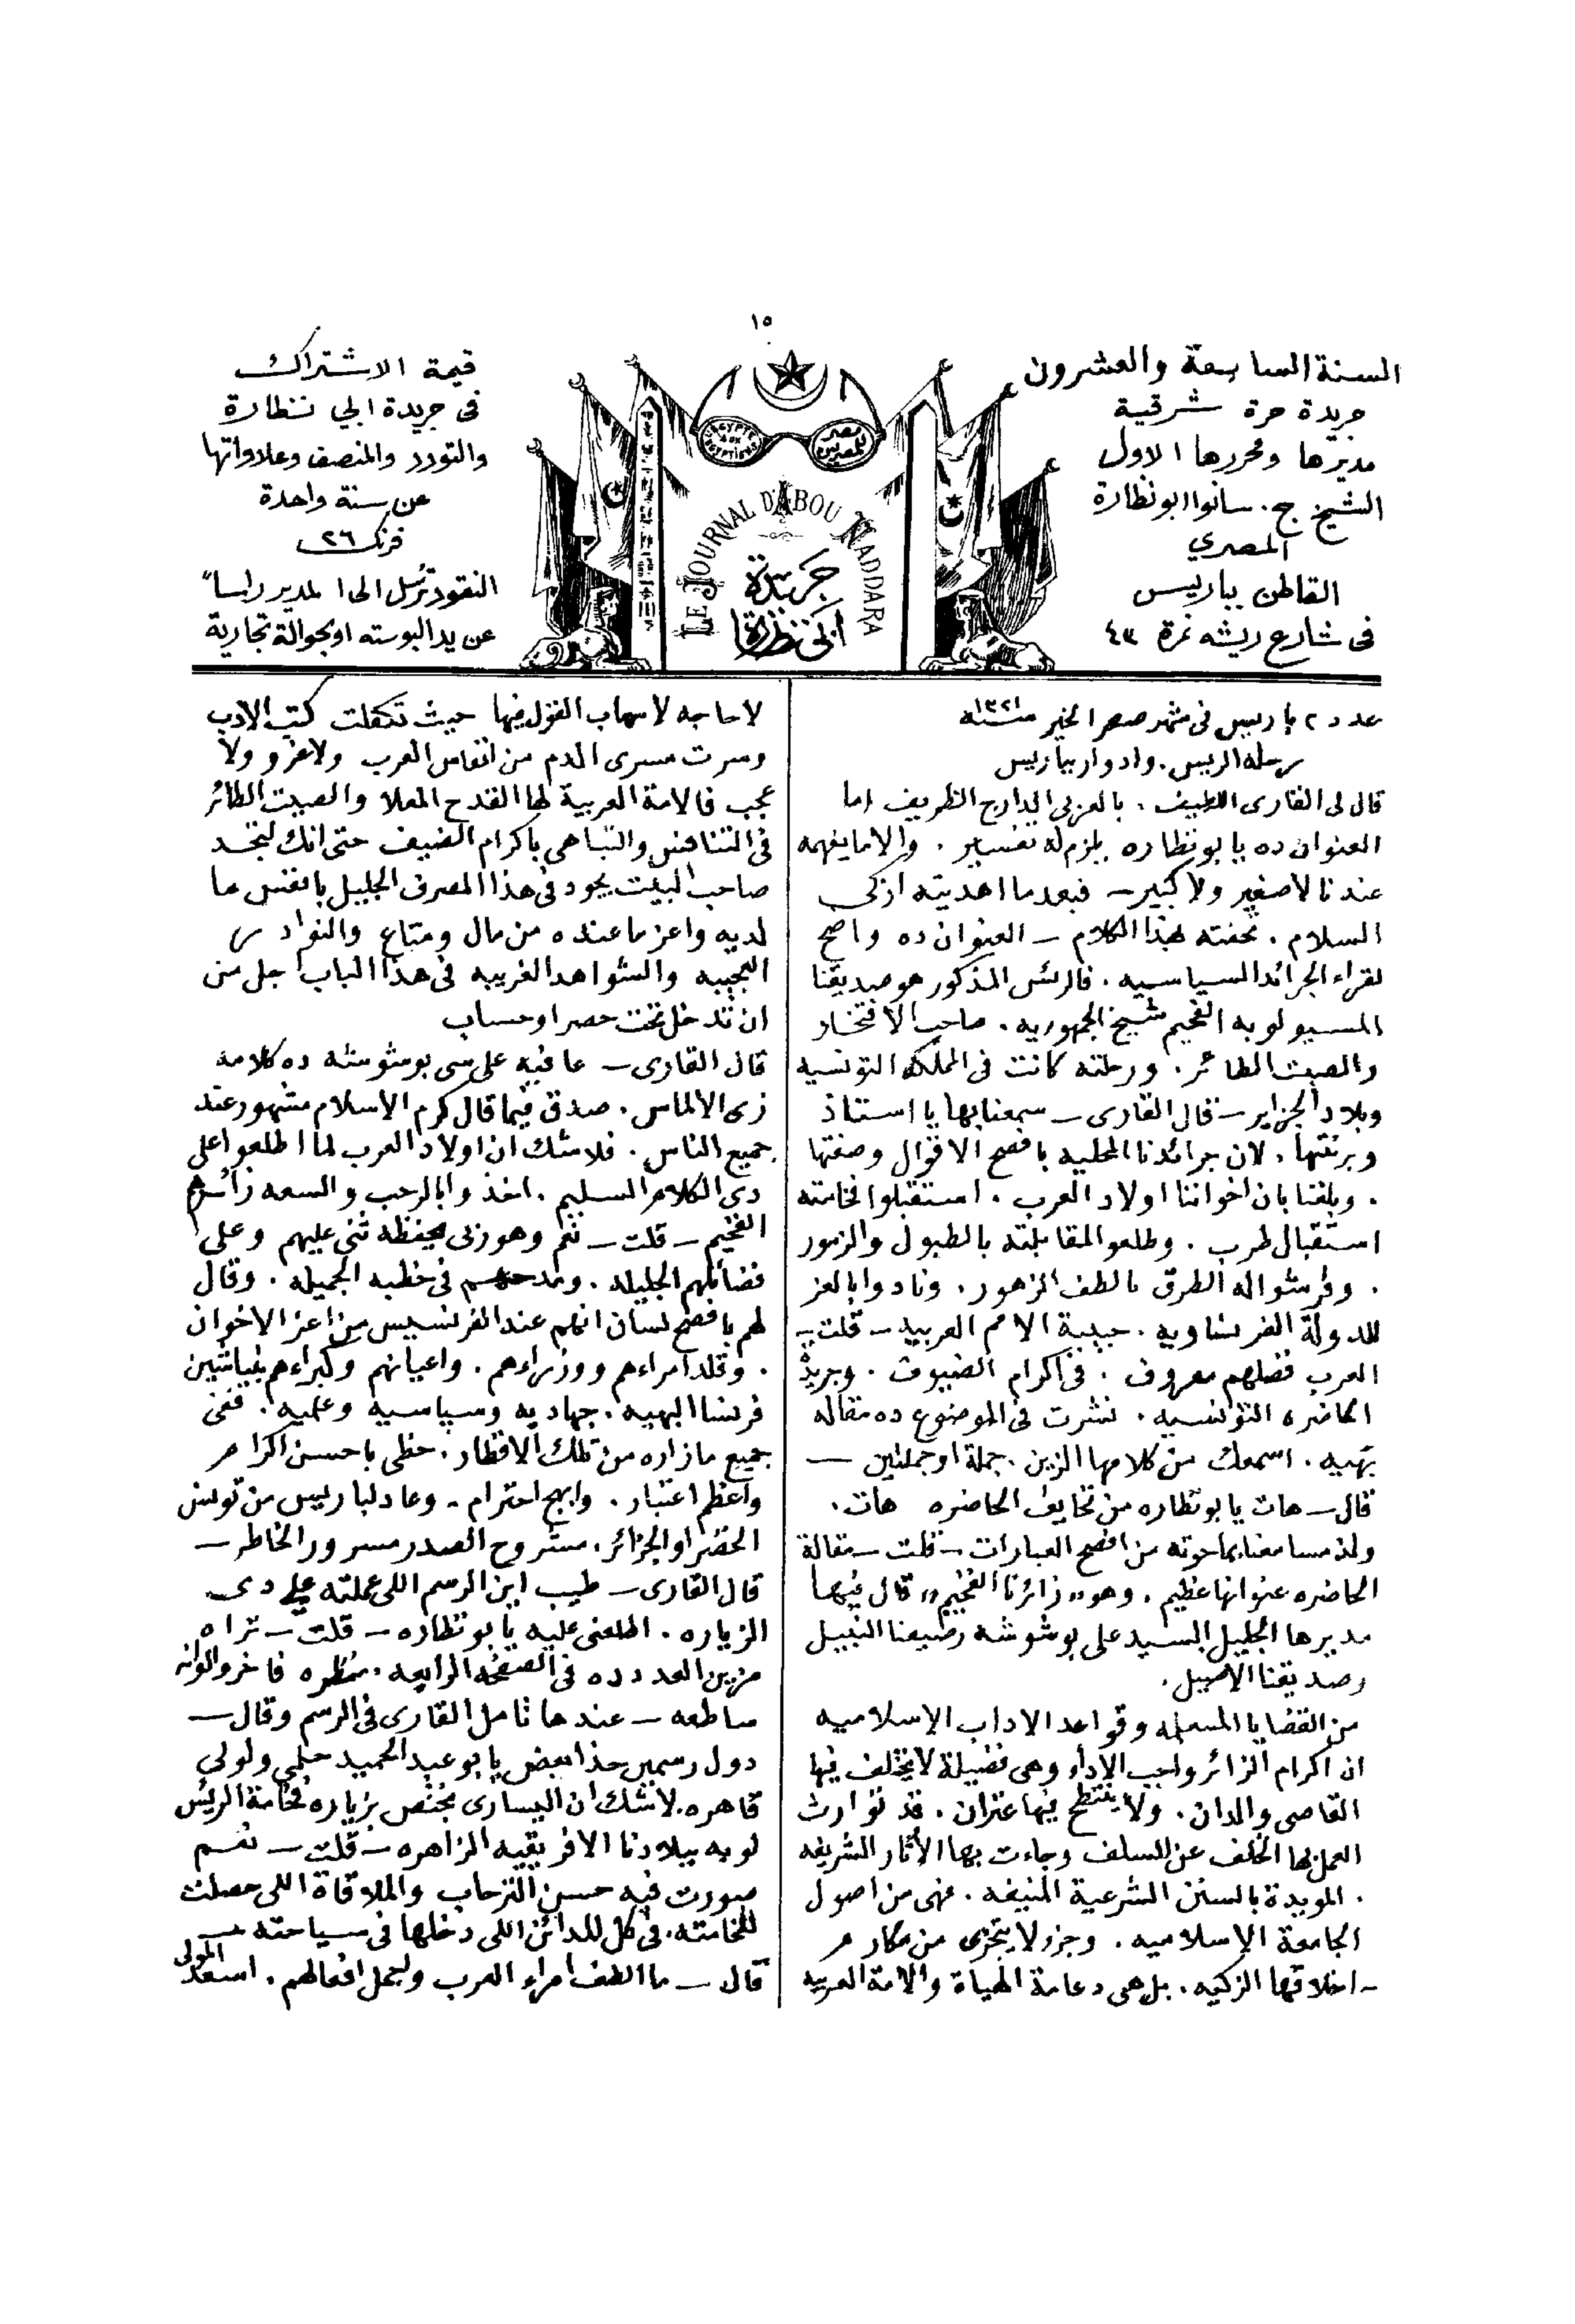 ١٥
السنة السابعة والعشرون
جريدة حرة شرقية
مديرها ومحررها الاول
الشيخ ج. سانوا ابونظارة
المصري
القاطن بباريس
فى شارع ريشه نمرة ٤٣
L'EGYPTE AUX EGYPTIENS
مصر للمصريين
LE JOURNAL D'ABOU NADDARA
جريدة
ابى نظارة
قيمة الاشتراك
فى جريدة ابى نظارة
والتودد والمنصف وعلاواتها
عن سنة واحدة
فرنك ٢٦
النقود ترسل الى المدير راسا"
عن يد البوسته او بحوالة تجارية
عدد ٢ باريس فى شهر صفر الخير سنة ١٣٢١
رحلة الريس. وادوار بباريس
قال لى القارى اللطيف. بالعربى الدارج الظريف اما
العنوان ده يا بو نظاره يلزم له تفسير. والا ما يفهمه
عندنا لا صغير ولا كبير – فبعدما اهديته ازكى
السلام. تحفته بهذا الكلام – العنوان ده واضح
لقراء الجرائد السياسيه. فالريس المذكور هو صديقنا
المسيو لوبه الفخيم شيخ الجمهوريه. صاحب الافتخار
والصيت الطائر. ورحلته كانت فى المملكه التونسيه
وبلاد الجزاير – قال القارى – سمعنا بها يا استاذ
وبرنتها. لان جرائدنا المحليه بافصح الاقوال وصفتها
. وبلغنا بان اخواننا اولاد العرب. استقبلوا فخامته
استقبال طرب. وطلعوا لمقابلته بالطبول والزمور
. وفرشوا له الطرق بالطف الزهور. ونادوا بالعز
للدولة الفرنساويه. حبيبة الامم العربيه – قلت –
العرب فضلهم معروف. فى اكرام الضيوف. وجريدة
الحاضره التونسيه. نشرت فى الموضوع ده مقاله
بهيه. اسمعك من كلامها الزين. جملة او جملتين –
قال – هات يا بو نظاره من تحايف الحاضره هات.
ولذ مسامعنا بما حوته من افصح العبارات – قلت – مقالة
الحاضره عنوانها عظيم. وهو "زائرنا الفخيم" قال فيها
مديرها الجليل السيد على بوشوشه رصيفنا النبيل
وصديقنا الاصيل.
من القضايا المسلمه وقواعد الاداب الاسلاميه
ان اكرام الزائر واجب الاداء وهى فضيلة لا يختلف فيها
القاصى والدان. ولا ينتطح فيها عنزان. قد توارث
العمل بها الخلف عن السلف وجاءت بها الأثار الشريفه
. المويدة بالسنن الشرعية المنيفه. فهى من اصول
الجامعة الاسلاميه. وجزء لا يتجزى من مكارم
اخلاقها الزكيه. بل هى دعامة الحياة والامة العربيه
لا حاجه لاسهاب القول فيها حيث تكفلت كتب الادب
وسرت مسرى الدم من انفاس العرب ولا غرو ولا
عجب فالامة العربية لها القدح المعلا والصيت الطائر
فى التنافس والتباهى باكرام الضيف حتى انك لتجد
صاحب البيت يجود فى هذا المصرف الجليل بانفس ما
لديه واعز ما عنده من مال ومتاع والنوادر
العجيبه والشواهد الغريبه فى هذا الباب اجل من
ان تدخل تحت حصر او حساب
قال القارى – عافيه على سى بوشوشه ده كلامه
زى الالماس. صدق فيما قال كرم الاسلام مشهور عند
جميع الناس. فلا شك ان اولاد العرب لما اطلعوا على
دى الكلام السليم. اخذوا بالرحب والسعه زائرهم
الفخيم – قلت – نعم وهو زى بحفظه ثنى عليهم وعلى
فضائلهم الجليله. ومدحهم فى خطبه الجميله. وقال
لهم بافصح لسان انهم عند الفرنسيس من اعز الاخوان
. وقلد امراءهم ووزراءهم. واعيانهم وكبراءهم بنياشين
فرنسا البهيه. جهاديه وسياسيه وعلميه. ففى
جميع ما زاره من تلك الاقطار. حظى باحسن اكرام
واعظم اعتبار. وابهج احترام. وعاد لباريس من تونس
الخضرا والجزائر. مشروح الصدر مسرور الخاطر –
قال القارى – طيب اين الرسم اللى عملته على دى
الزياره. اطلعنى عليه يا بو نظاره – قلت – تراه
مزين العدد ده فى الصفحه الرابعه. منظره فاخر والوانه
ساطعه – عندها تامل القارى فى الرسم وقال –
دول رسمين حذا بعض يا بو عبد الحميد حلمى ولولى
قاهره. لا شك ان اليسارى مختص بزياره فخامة الريس
لوبه ببلادنا الافريقيه الزاهره – قلت – نعم
صورت فيه حسن الترحاب والملاقاة اللى حصلت
لفخامته. فى كل المدائن اللى دخلها فى سياحته –
قال – ما الطف امراء العرب وليجمل افعالهم. اسعد المولى